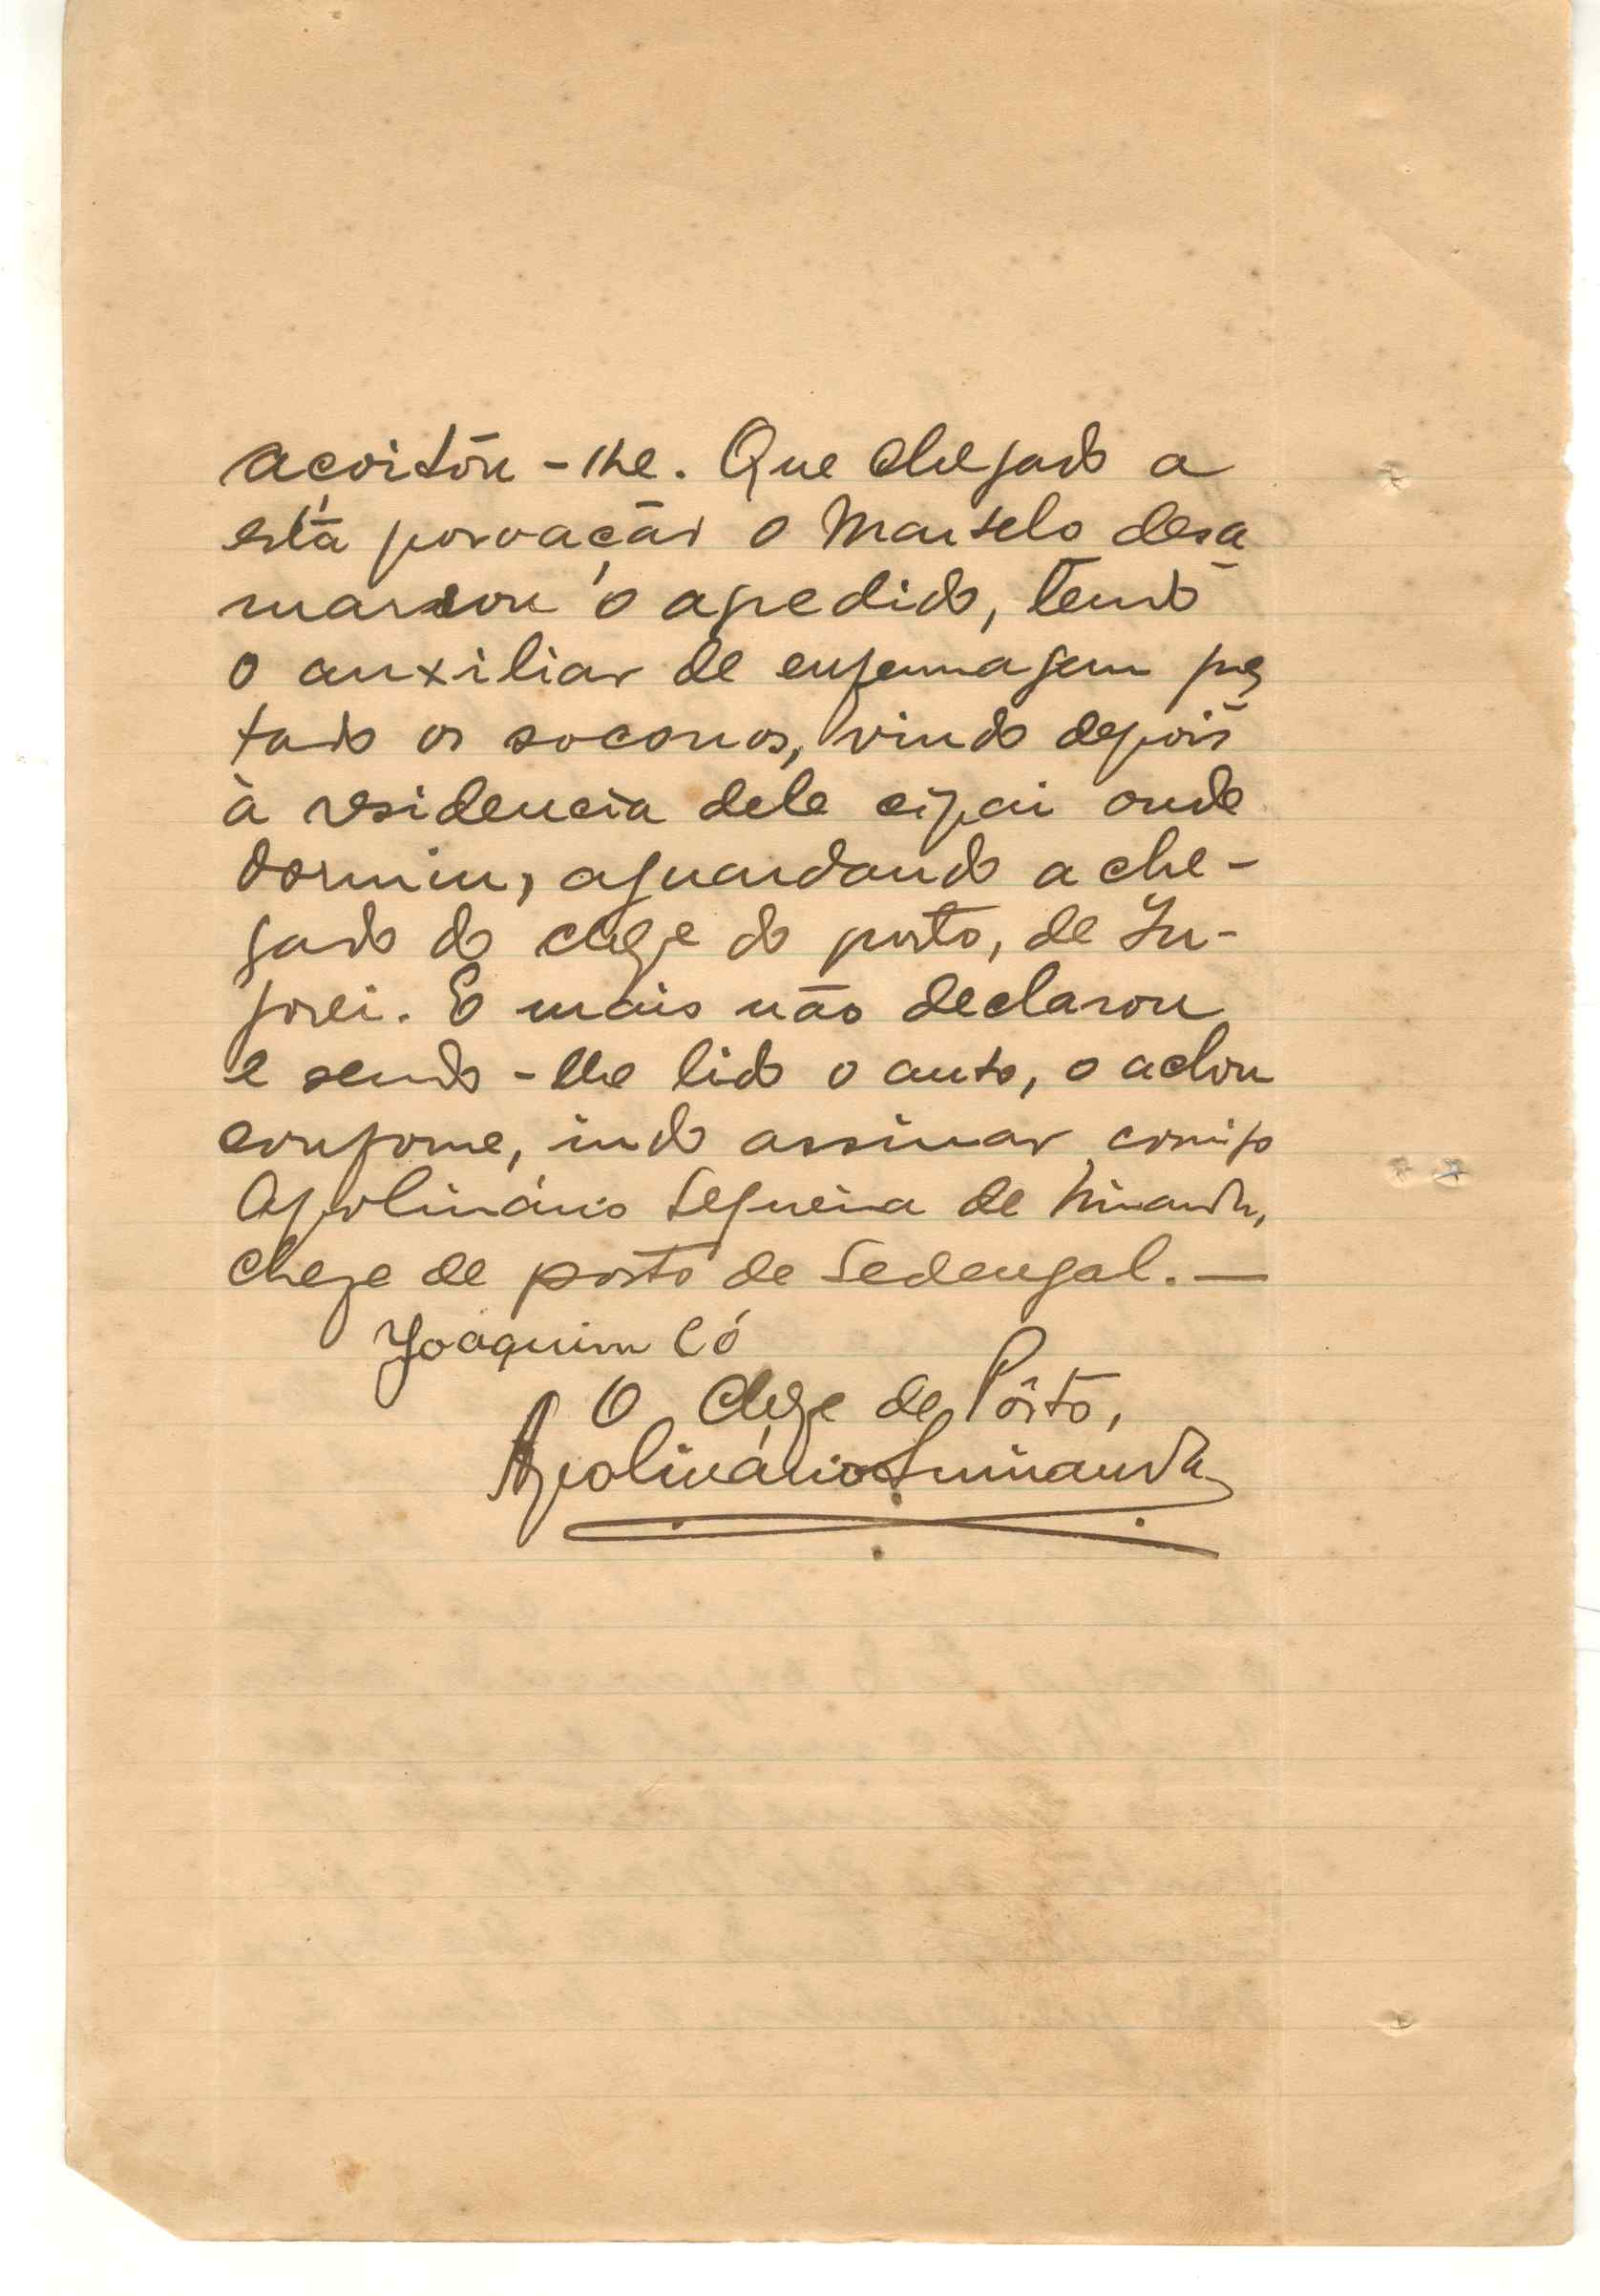 açoitou-lhe. Que chegado a
esta povoação o Martelo desa
marrou o agredido, tendo
o auxiliar de enfermagem pres
tado os socorros, vindo depois
à residencia dele cipai onde
dormiu, aguardando a che-
gado do chefe do posto, de In-
gorei. E mais não declarou
e sendo-lhe lido o auto, o achou
conforme, indo assinar comigo
Apolinário Sequeira de Miranda,
chefe de posto de Sedengal.—
Joaquim Có
O Chefe de Pôsto,
Apolinário S Miranda